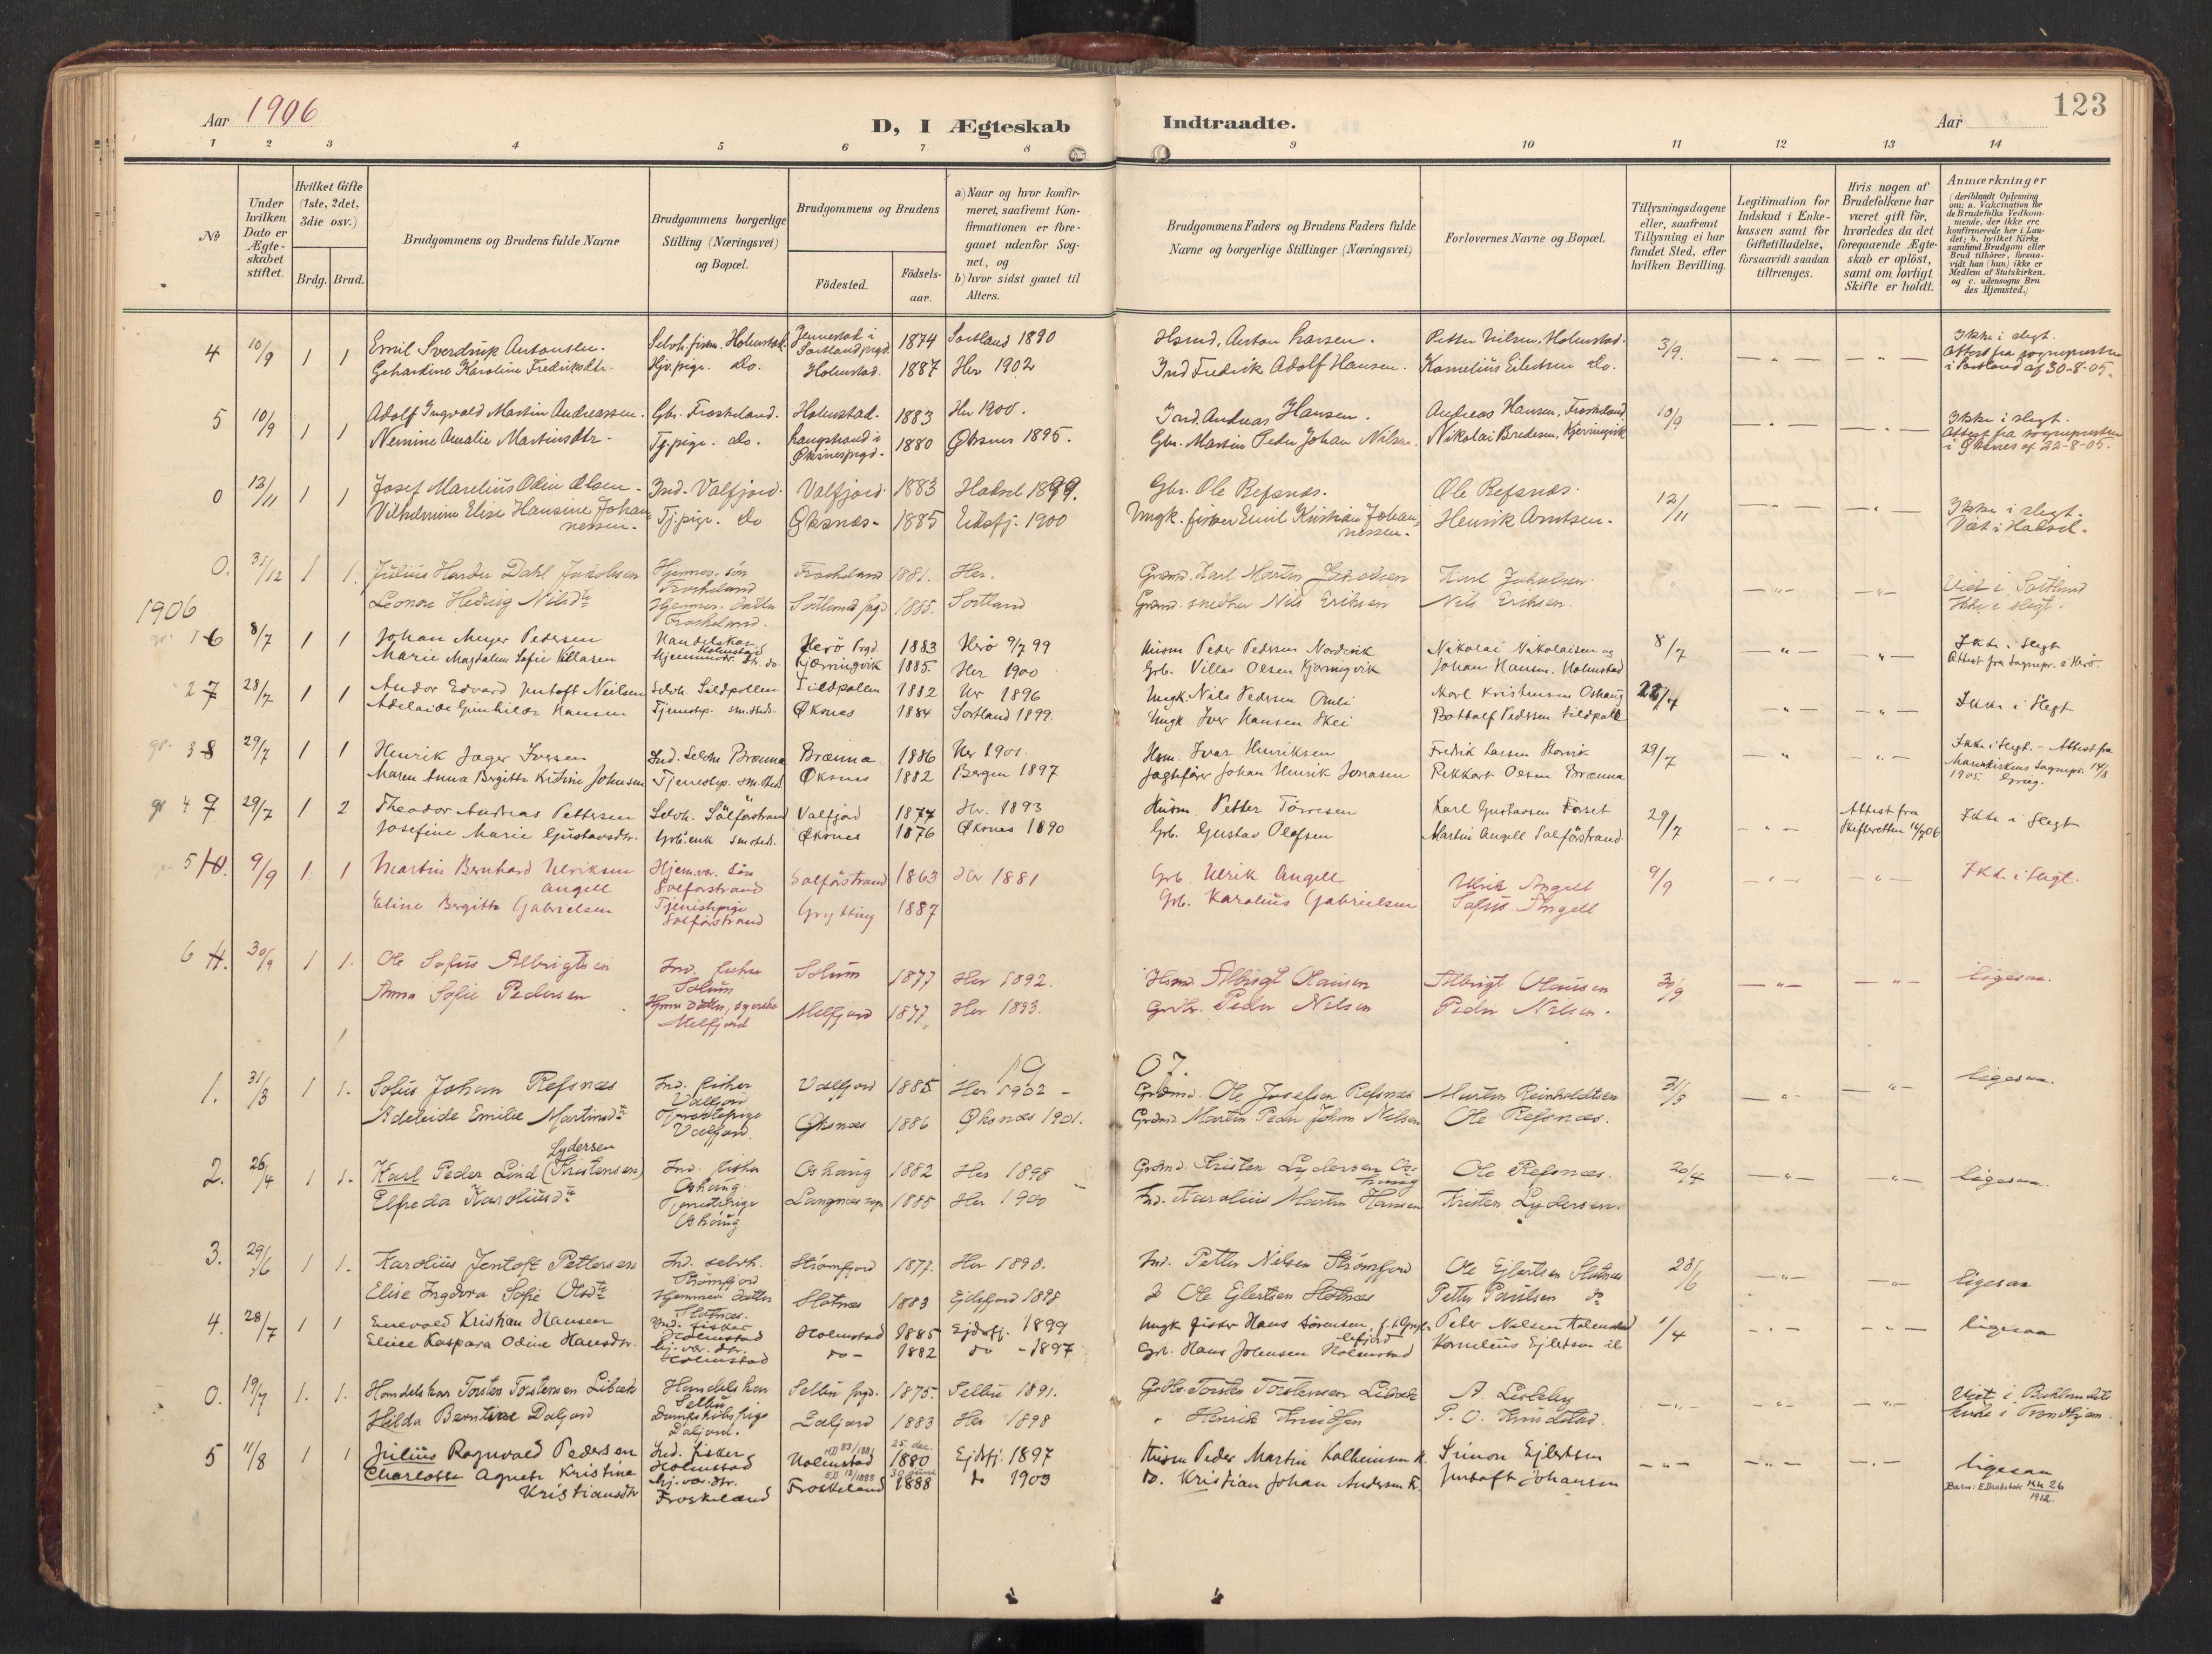 123
Aar 1906
D, I Ægteskab
Indtraadte.
Aar
1 2 3 4 5 6 7 8 9 10 11 12 13 14
№
Under hvilken Dato er Ægteskabet stiftet.
Hvilket Gifte (1ste, 2det, 3die osv.)
Brdg. Brud.
Brudgommens og Brudens fulde Navne
Brudgommens borgerlige Stilling (Næringsvei) og Bopæl.
Brudgommens og Brudens
Födested.
Födselsaar.
a) Naar og hvor konfirmeret, saafremt Konfirmationen er foregaaet udenfor Sognet, og
b) hvor sidst gaaet til Alters.
Brudgommens Faders og Brudens Faders fulde Navne og borgerlige Stillinger (Næringsvei)
Forlovernes Navne og Bopæl.
Tillysningsdagene eller, saafremt Tillysning ei har fundet Sted, efter hvilken Bevilling.
Legitimation for Indskud i Enkekassen samt for Giftetilladelse, forsaavidt saadan tiltrænges.
Hvis nogen af Brudefolkene har været gift för, hvorledes da det foregaaende Ægteskab er oplöst, samt om lovligt Skifte er holdt.
Anmærkninger
(deriblandt Oplysning om: a. Vaccination for de Brudefolks Vedkommende, der ikke ere konfirmerede her i Landet; b. hvilket Kirkesamfund Brudgom eller Brud tilhörer, forsaavidt han (hun) ikke er Medlem af Statskirken. og c. udensogns Brudes Hjemsted.)
4 10/9 1 1 Emil Sverdrup Antonsen. Selvh. fiskr. Holmstad. Jennestad i Sortland prgd. 1874 Sortland 1890 Hsmd. Anton Larsen. Petter Nilsen. Holmstad. 3/9. Ikke i slegt. Attest fra sognepresten i Sortland af 30-8-05.
Gerhardine Karoline Fredriksdtr. Hjv. pige. do. Holmstad. 1887 Her 1902 Ind Fredrik Adolf Hansen. Kornelius Eilertsen do.
5 10/9 1 1 Adolf Ingvald Martin Andreassen. Gbr. Froskeland. Holmstad. 1883 Her 1900. Ind. Andreas Hansen. Andreas Hansen, Froskeland 10/9 Ikke i slegt. Attest fra sognepresten i Øksnes af 22-8-05.
Nemine Amalie Martinsdtr. Tj. pige. do. Langstrand i Øksnes prgd. 1880 Øksnes 1895. Gbr. Martin Peder Johan Nilsen. Nikolai Bredesen, Kjerringvik
0 12/11 1 1 Josef Marelius Odin Olsen. Ind. Valfjord. Valfjord. 1883 Hadsel 1899. Gbr. Ole Refsnes. Ole Refsnæs. 12/11 Ikke i slegt. Viet i Hadsel.
Vilhelmine Elise Hansine Johannessen. Tj. pige. do Øksnæs 1885 Eidsfj. 1900 Ungk. fisker Emil Kristian Johannessen. Henrik Arntsen.
0. 31/12 1 1. Julius Harder Dahl Jakobsen Hjemmev. søn Froskeland Froskeland 1881. Her. Grdmd. Karl Martin Jakobsen Karl Jakobsen. Viet i Sortland Ikke i slegt.
Leonore Hedvig Nilsdtr. Hjemmev. datter Froskeland. Sortlands prgd 1885. Sortland Grdmd. smedker Nils Eriksen Nils Eriksen.
1906
1 6 8/7 1 1 Johan Meyer Pedersen Handelskar Holmstad Herö Prgd. 1883 Herö 9/7 99 Husm. Peder Pedersen Nordvik Nikolai Nikolaisen og 8/7 Ikke i Slegt Attest fra Sognepr. i Herö
Marie Magdalene Sofie Villasen Hjemmev. dtr. do. Kjerringvik 1885. Her 1900 Grb. Villas Olsen Kjerringvik Johan Hansen. Holmstad
2 7 28/7 1 1 Andor Edvard Jentoft Neilsen Selvh. Sildpollen Sildpollen 1882 Her 1896 Ungk. Nils Pedersen Omli Karl Kristensen Oshaug 28/7 Ikke i Slegt
Adelaide Gunhilde Hansen Tjenestep. sm.steds. Øksnes 1884 Sortland 1899. Ungk Iver Hansen Skei Botholf Pedersen Sildpoll
gr. 3 8 29/7 1 1 Henrik Jager Ivarsen Ind. Selvh. Brænna Brænna 1886 Her 1901. Husm. Ivar Henriksen Fredrik Larsen Storvik 29/7 Ikke i Slegt. - Attest fra Mariakirkens Sognepr. 14/8 1905.
Maren Anna Bergitte Kristine Johnsen Tjenestep. sm.steds. Øksnes 1882 Bergen 1897 Jagtefører Johan Henrik Jonasen Rikkart Olsen Brænna
gr 4 9 29/7 1 2 Theodor Andreas Pettersen Selvh. Sölförstrand Valfjord 1877 Her. 1893 Husm. Petter Törresen Karl Gustavsen Forset 29/7 Attest fra Skifteretten 16/7 06 Ikke i Slegt
Josefine Marie Gustavsdtr. Grb. enk. sm.steds. Øksnes 1876 Øksnes 1890 Grb. Gustav Olafsen Martin Angell Solförstrand.
5 10. 9/9 1 1 Martin Bernhard Ulriksen Angell Hjem.vær. Søn Solforstrand Solförstrand 1863 Her 1881 Grb. Ulrik Angell Ulrik Angell 9/9 Ikke i Slegt.
Eline Bergitte Gabrielsen Tjenistepige Solforstrand Grytting 1887 Grb. Karolius Gabrielsen Sofus Angell
6 11. 30/9 1 1. Ole Sofus Albrigtsen Ind. fisker Solum Solum 1877 Her 1892. Husmd. Albrigt Olausen Albrigt Olausen 30/9 ligesaa.
Anna Sofie Pedersen Hjemv. datter, syerske Melfjord Melfjord 1877. Her 1893. Grdbr. Peder Nilsen Peder Nilsen.
1907.
1. 31/3 1 1. Sofus Johan Refsnæs Ind. fisker Valfjord Valfjord 1885 Her 1902 Grdmd. Ole Josefsen Refsnæs Martin Reinholdtsen 31/3 ligesaa.
Adeleide Emilie Martinsdtr. Tjenestepige Valfjord. Øksnæs 1886 Øksnæs 1901. Grdmd. Martin Peder Johan Nilsen Ole Refsnæs.
2. 26/4 1 1. Karl Peder Lind (Kristensen) Lydersen Ind. fisker Oshaug Oshaug 1882 Her 1898 Grdmd. Kristen Lydersen Oshaug Ole Refsnæs. 20/4 ligesaa.
Elfreda Karoliusdtr. Tjenestepige Oshaug Langnæs sogn 1885 Her 1900 Ind. Karolius Martin Hansen Kristen Lydersen.
3. 29/6 1 1. Karolius Jentoft Pettersen Ind. selvh. Strömfjord Strömfjord 1877. Her 1893. Ind. Petter Nilsen Strömfjord Ole Ejlertsen Slotnæs 28/6 ligesaa
Elise Ingdora Sofie Olsdtr. Hjemmev. datter Slotnæs. Slotnæs 1883 Ejdsfjord 1898 do Ole Ejlertsen Slotnæs Petter Paulsen do
4. 28/7 1 1 Enevold Kristian Hansen Ind. fisker Holmstad Holmstad 1885 Ejdsfj. 1899 Ungk fisker Hans Sörensen, Peter Nilsen Holmstad 1/4 ligesaa
Eline Kaspara Odine Hansdtr. hj. vær. dtr. Holmstad do 1882 do 1897 Grb. Hans Johnsen Holmstad Kornelius Ejlertsen
0. 19/7 1. 1. Handelskar Torsten Torstensen Libæk Handelskar Selbu. Selbu prgd. 1875. Selbu 1891. Grdbr Torsten Torstensen Libæk A. Lideby Viet i Baklandets kirke i Trondhjem.
Hilda Berntine Daljord Dampskibspige Daljord. Daljord 1883 Her 1898 " Henrik Knudsen P. O. Knudstad.
5 11/8 1 1 Julius Ragnvald Pedersen Ind. fisker Holmstad HD 83/1881 Holmstad 25. dec. 1880 Ejdsfj. 1897 Husm Peder Martin Kolbeinsen H. Simon Ejlertsen ligesaa
Charlotte Agnete Kristine Kristiansdtr hj. vær. dtr. Froskeland ED 13/1888 Froskeland 30 juni 1888 do 1903 do. Kristian Johan Andersen Fr. Jentoft Johansen Barn: E.Dåbsbok KN 26 1912.